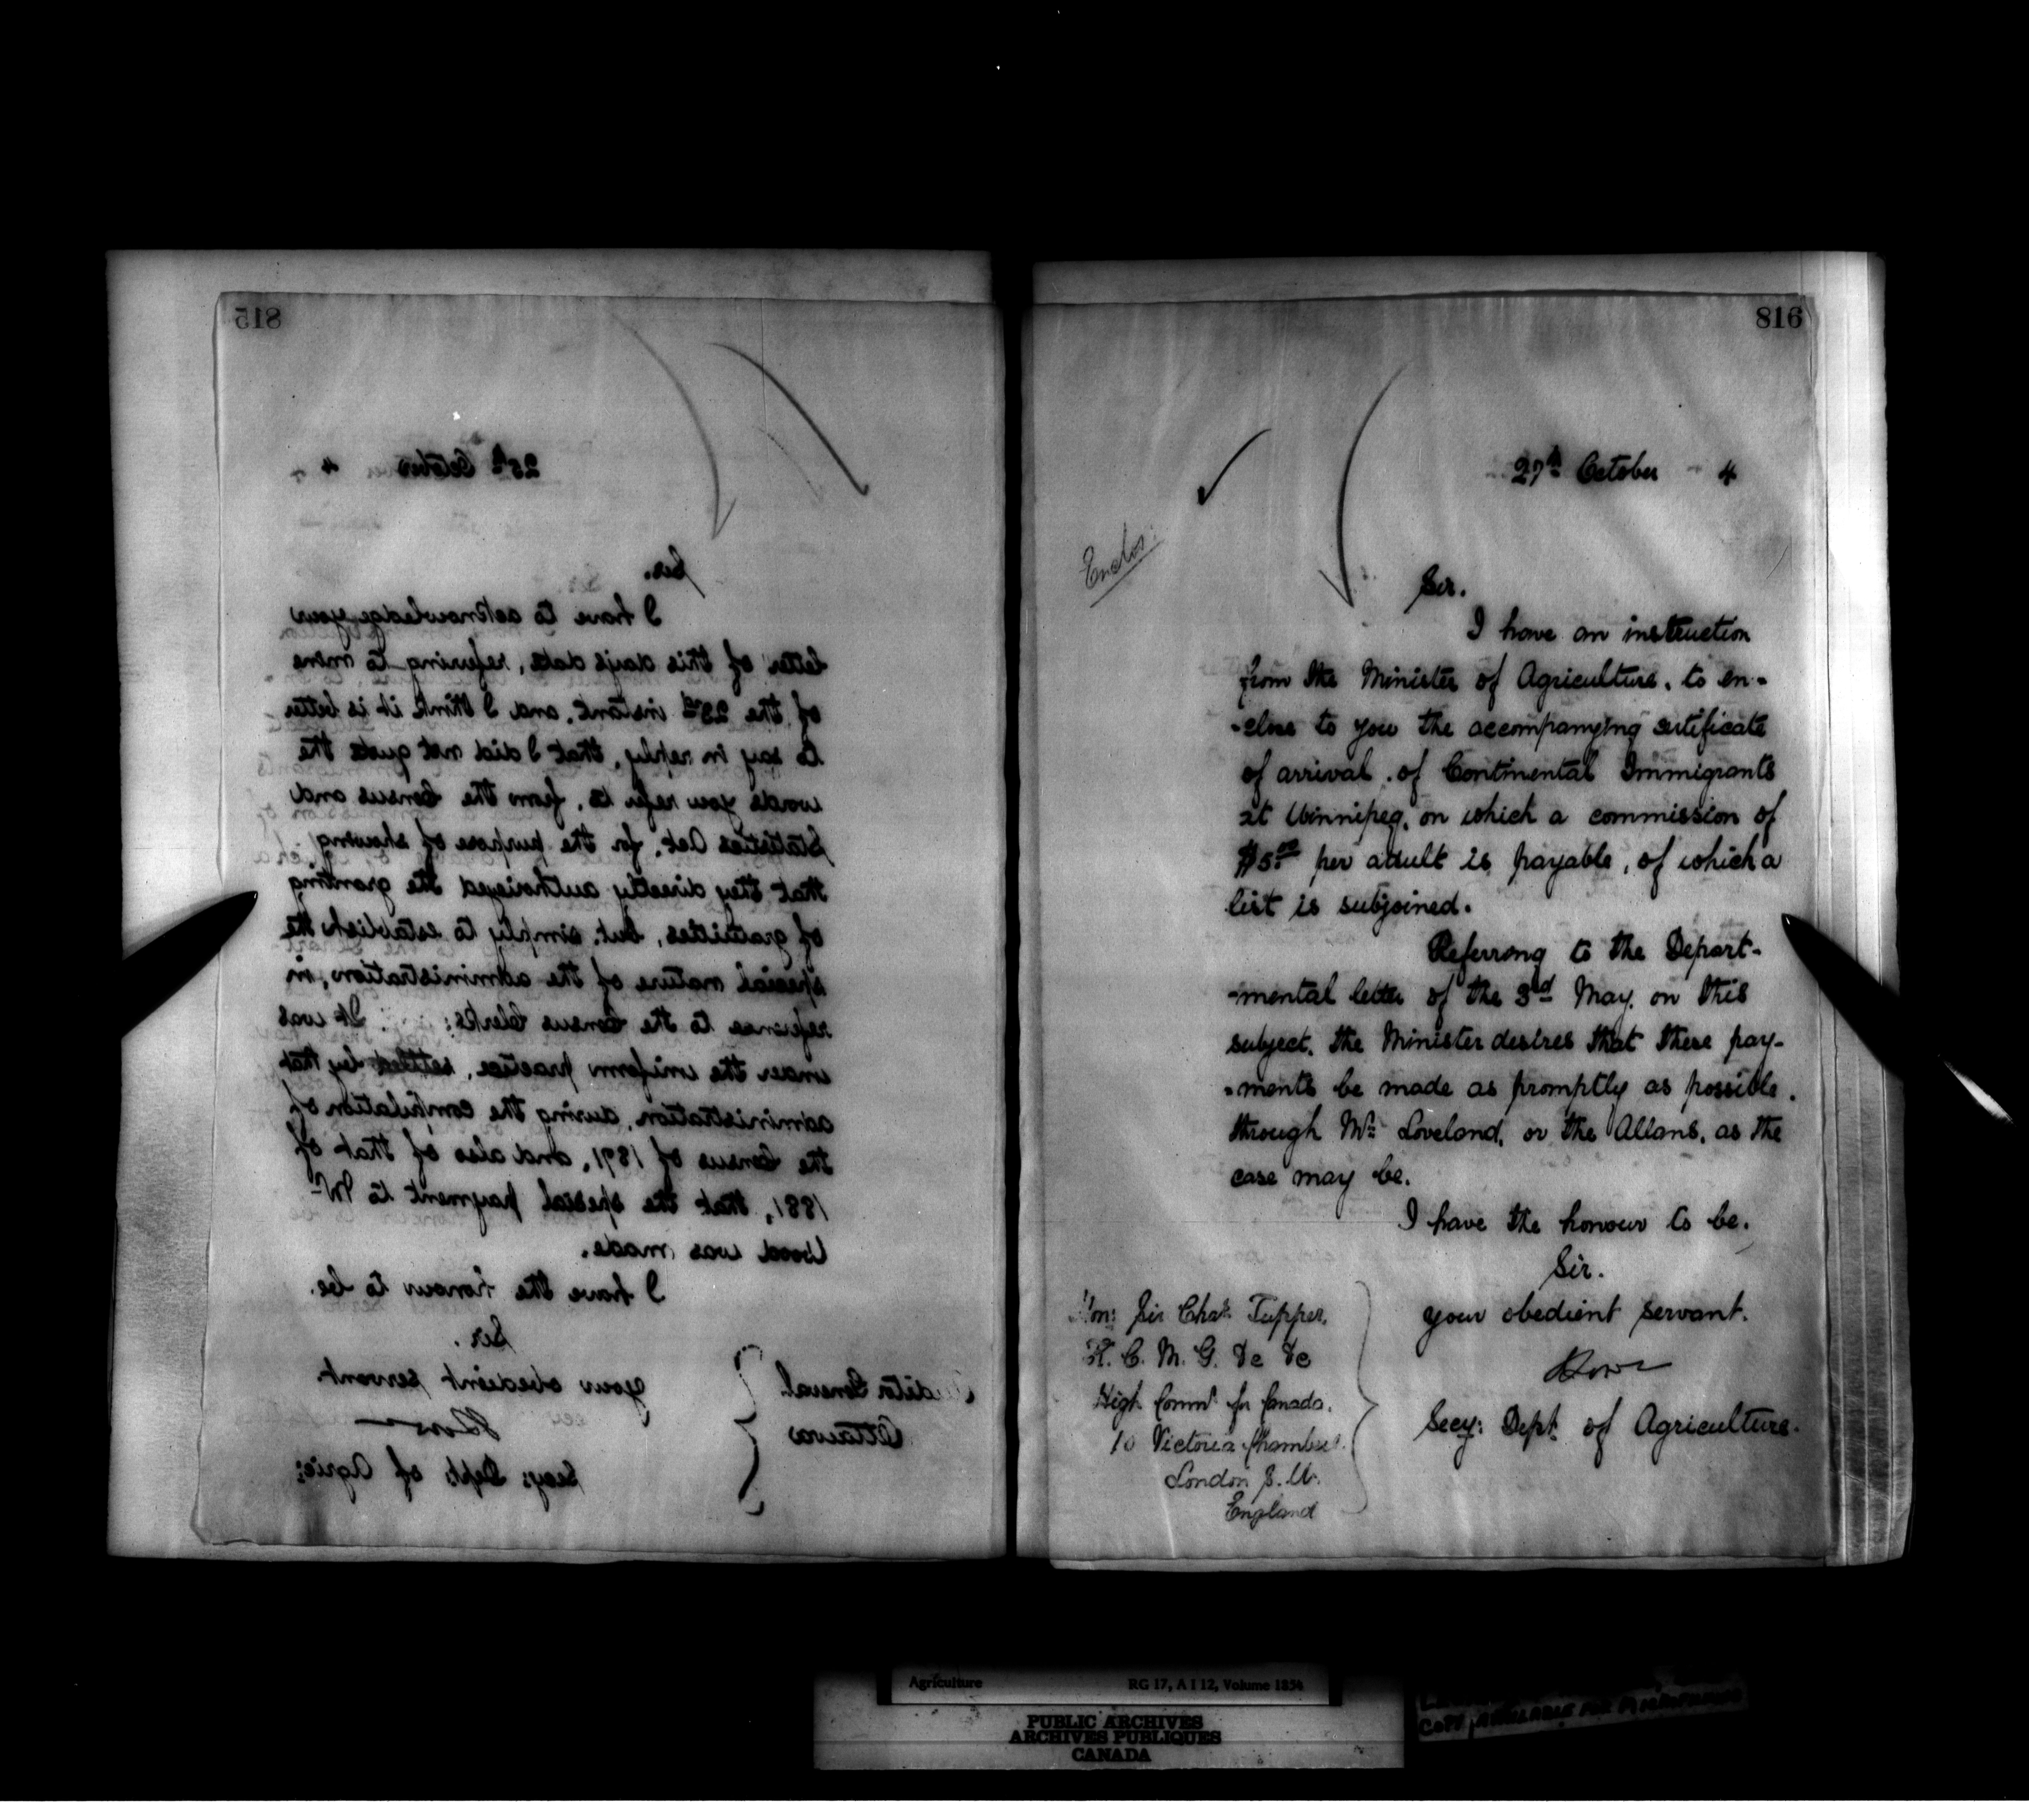 815
25th October 4
Sir.
I have to acknowledge your
letter of this day's date, referring to mine
of the 23rd instant, and I think it is better
to say in reply, that I did not quote the
words you refer to, from the Census and
Statistics Act, for the purpose of showing
that they directly authorized the granting
of gratuities, but, simply to establish the
special nature of the administration, in
reference to the Census Clerks; It was
under the uniform practice, settled by that
administration, during the compilation of
the Census of 1871, and also of that of
1881, that the special payment to Mr
Wood was made.
I have the honour to be.
Sir.
your obedient servant.
Secy: Dept: of Agric:
Auditor General
Ottawa
816
27th October 4
Enclos:
Sir.
I have an instruction
from the Minister of Agriculture, to en-
-close to you the accompanying certificate
of arrival, of Continental Immigrants
at Winnipeg, on which a commission of
$5.00 per adult is payable, of which a
list is subjoined.
Referring to the Depart-
-mental letter of the 3d May, on this
subject, the Minister desires that these pay-
-ments be made as promptly as possible,
through Mr: Loveland, or the Allans, as the
case may be.
I have the honour to be.
Sir.
your obedient servant.
Secy: Dept. of Agriculture.
Hon: Sir Chas. Tupper,
K. C. M. G. &c &c
High Commr for Canada,
10 Victoria Chambers.
London S. W.
England
Agriculture RG 17, A I 12, Volume 1854
PUBLIC ARCHIVES
ARCHIVES PUBLIQUES
CANADA
COPY AVAILABLE FOR MICROFILMING